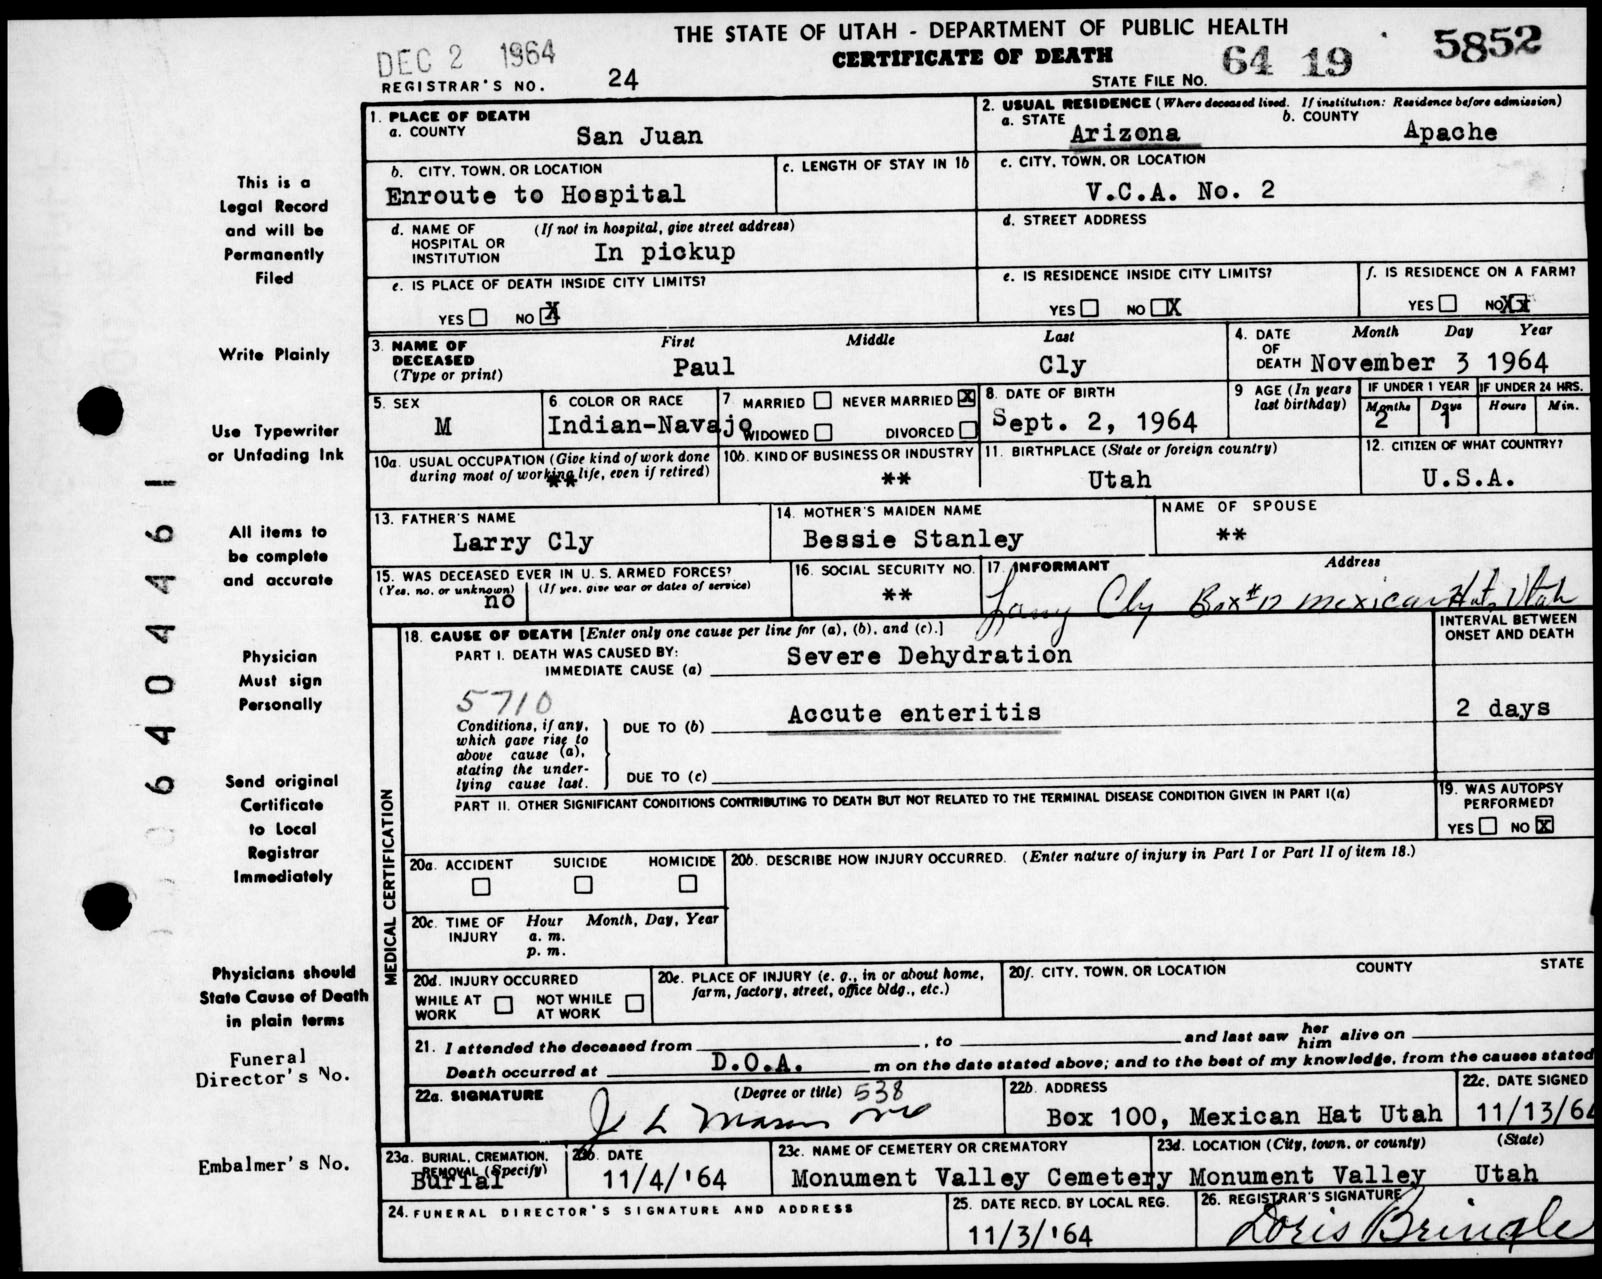 THE STATE OF UTAH - DEPARTMENT OF PUBLIC HEALTH
CERTIFICATE OF DEATH
DEC 2 1964
REGISTRAR'S NO. 24
STATE FILE NO. 64 19 5852
This is a
Legal Record
and will be
Permanently
Filed
Write Plainly
Use Typewriter
or Unfading Ink
All items to
be complete
and accurate
Physician
Must sign
Personally
Send original
Certificate
to Local
Registrar
Immediately
Physicians should
State Cause of Death
in plain terms
Funeral
Director's No.
Embalmer's No.
6404461
1. PLACE OF DEATH
a. COUNTY San Juan
2. USUAL RESIDENCE (Where deceased lived. If institution: Residence before admission)
a. STATE Arizona b. COUNTY Apache
b. CITY, TOWN, OR LOCATION
Enroute to Hospital
c. LENGTH OF STAY IN 1b
c. CITY, TOWN, OR LOCATION
V.C.A. No. 2
d. NAME OF HOSPITAL OR INSTITUTION (If not in hospital, give street address)
In pickup
d. STREET ADDRESS
e. IS PLACE OF DEATH INSIDE CITY LIMITS?
YES NO X
e. IS RESIDENCE INSIDE CITY LIMITS?
YES NO X
f. IS RESIDENCE ON A FARM?
YES NO XX
3. NAME OF DECEASED (Type or print)
First Middle Last
Paul Cly
4. DATE OF DEATH Month Day Year
November 3 1964
5. SEX
M
6 COLOR OR RACE
Indian-Navajo
7 MARRIED NEVER MARRIED X
WIDOWED DIVORCED
8. DATE OF BIRTH
Sept. 2, 1964
9 AGE (In years last birthday)
IF UNDER 1 YEAR IF UNDER 24 HRS.
Months Days Hours Min.
2 1
10a. USUAL OCCUPATION (Give kind of work done during most of working life, even if retired)
**
10b. KIND OF BUSINESS OR INDUSTRY
**
11. BIRTHPLACE (State or foreign country)
Utah
12. CITIZEN OF WHAT COUNTRY?
U.S.A.
13. FATHER'S NAME
Larry Cly
14. MOTHER'S MAIDEN NAME
Bessie Stanley
NAME OF SPOUSE
**
15. WAS DECEASED EVER IN U. S. ARMED FORCES?
(Yes, no, or unknown) (If yes, give war or dates of service)
no
16. SOCIAL SECURITY NO.
**
17. INFORMANT Address
Larry Cly Box #12 Mexican Hat, Utah
18. CAUSE OF DEATH [Enter only one cause per line for (a), (b), and (c).]
INTERVAL BETWEEN ONSET AND DEATH
PART I. DEATH WAS CAUSED BY:
IMMEDIATE CAUSE (a) Severe Dehydration
5710
Conditions, if any, which gave rise to above cause (a), stating the underlying cause last.
DUE TO (b) Accute enteritis 2 days
DUE TO (c)
PART II. OTHER SIGNIFICANT CONDITIONS CONTRIBUTING TO DEATH BUT NOT RELATED TO THE TERMINAL DISEASE CONDITION GIVEN IN PART I(a)
19. WAS AUTOPSY PERFORMED?
YES NO X
MEDICAL CERTIFICATION
20a. ACCIDENT SUICIDE HOMICIDE
20b. DESCRIBE HOW INJURY OCCURRED. (Enter nature of injury in Part I or Part II of item 18.)
20c. TIME OF INJURY Hour Month, Day, Year
a. m.
p. m.
20d. INJURY OCCURRED
WHILE AT WORK NOT WHILE AT WORK
20e. PLACE OF INJURY (e. g., in or about home, farm, factory, street, office bldg., etc.)
20f. CITY, TOWN, OR LOCATION COUNTY STATE
21. I attended the deceased from , to and last saw her him alive on
Death occurred at D.O.A. m on the date stated above; and to the best of my knowledge, from the causes stated
22a. SIGNATURE (Degree or title) 538
J L Mason MD
22b. ADDRESS
Box 100, Mexican Hat Utah
22c. DATE SIGNED
11/13/64
23a. BURIAL, CREMATION, REMOVAL (Specify)
Burial
23b. DATE
11/4/'64
23c. NAME OF CEMETERY OR CREMATORY
Monument Valley Cemetery
23d. LOCATION (City, town, or county) (State)
Monument Valley Utah
24. FUNERAL DIRECTOR'S SIGNATURE AND ADDRESS
25. DATE RECD. BY LOCAL REG.
11/3/'64
26. REGISTRAR'S SIGNATURE
Doris Bringle